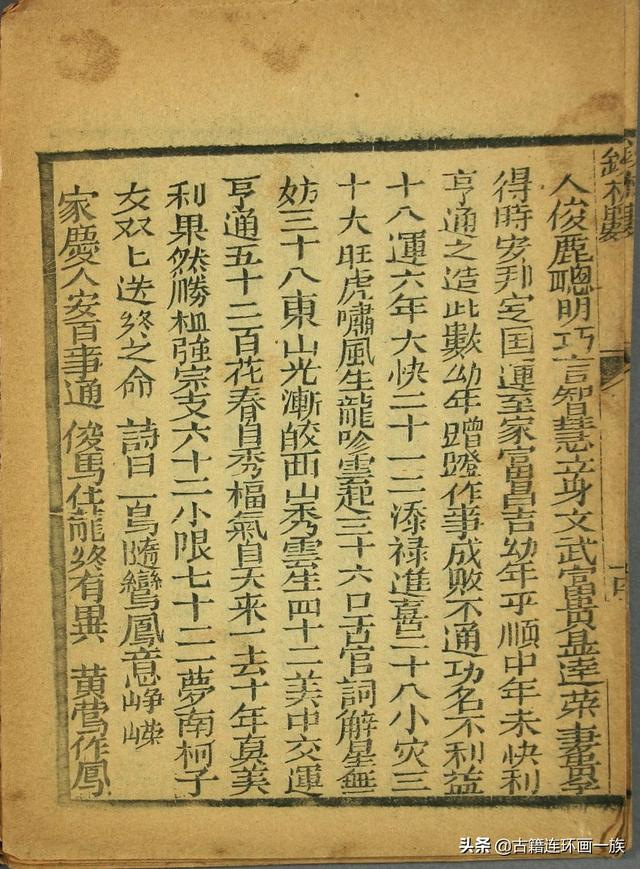 人俊鹿聰明巧言智慧立身文武富貴益逹荣妻貴孚
得時安邦定国運至家富昌吉幼年平順中年未快利
亨通之造此數幼年蹭蹬作事成敗不通功名不利益
十八運六年大快二十一二添禄進喜二十八小灾三
十大旺虎嘯風生龍吟雲起三十六口舌官詞解星無
妨三十八東山光漸皎西山秀雲生四十二美中交運
亨通五十二百花春自秀福氣自天来一去十年真美
利果然勝植強宗支六十二小限七十二夢南柯子
女双上送終之命 詩曰 一鳥隨鸞鳳意 崢嶸
家慶人安百事通 俊馬化龍終有異 黄鶯作鳳
头条 @古籍连环画一族